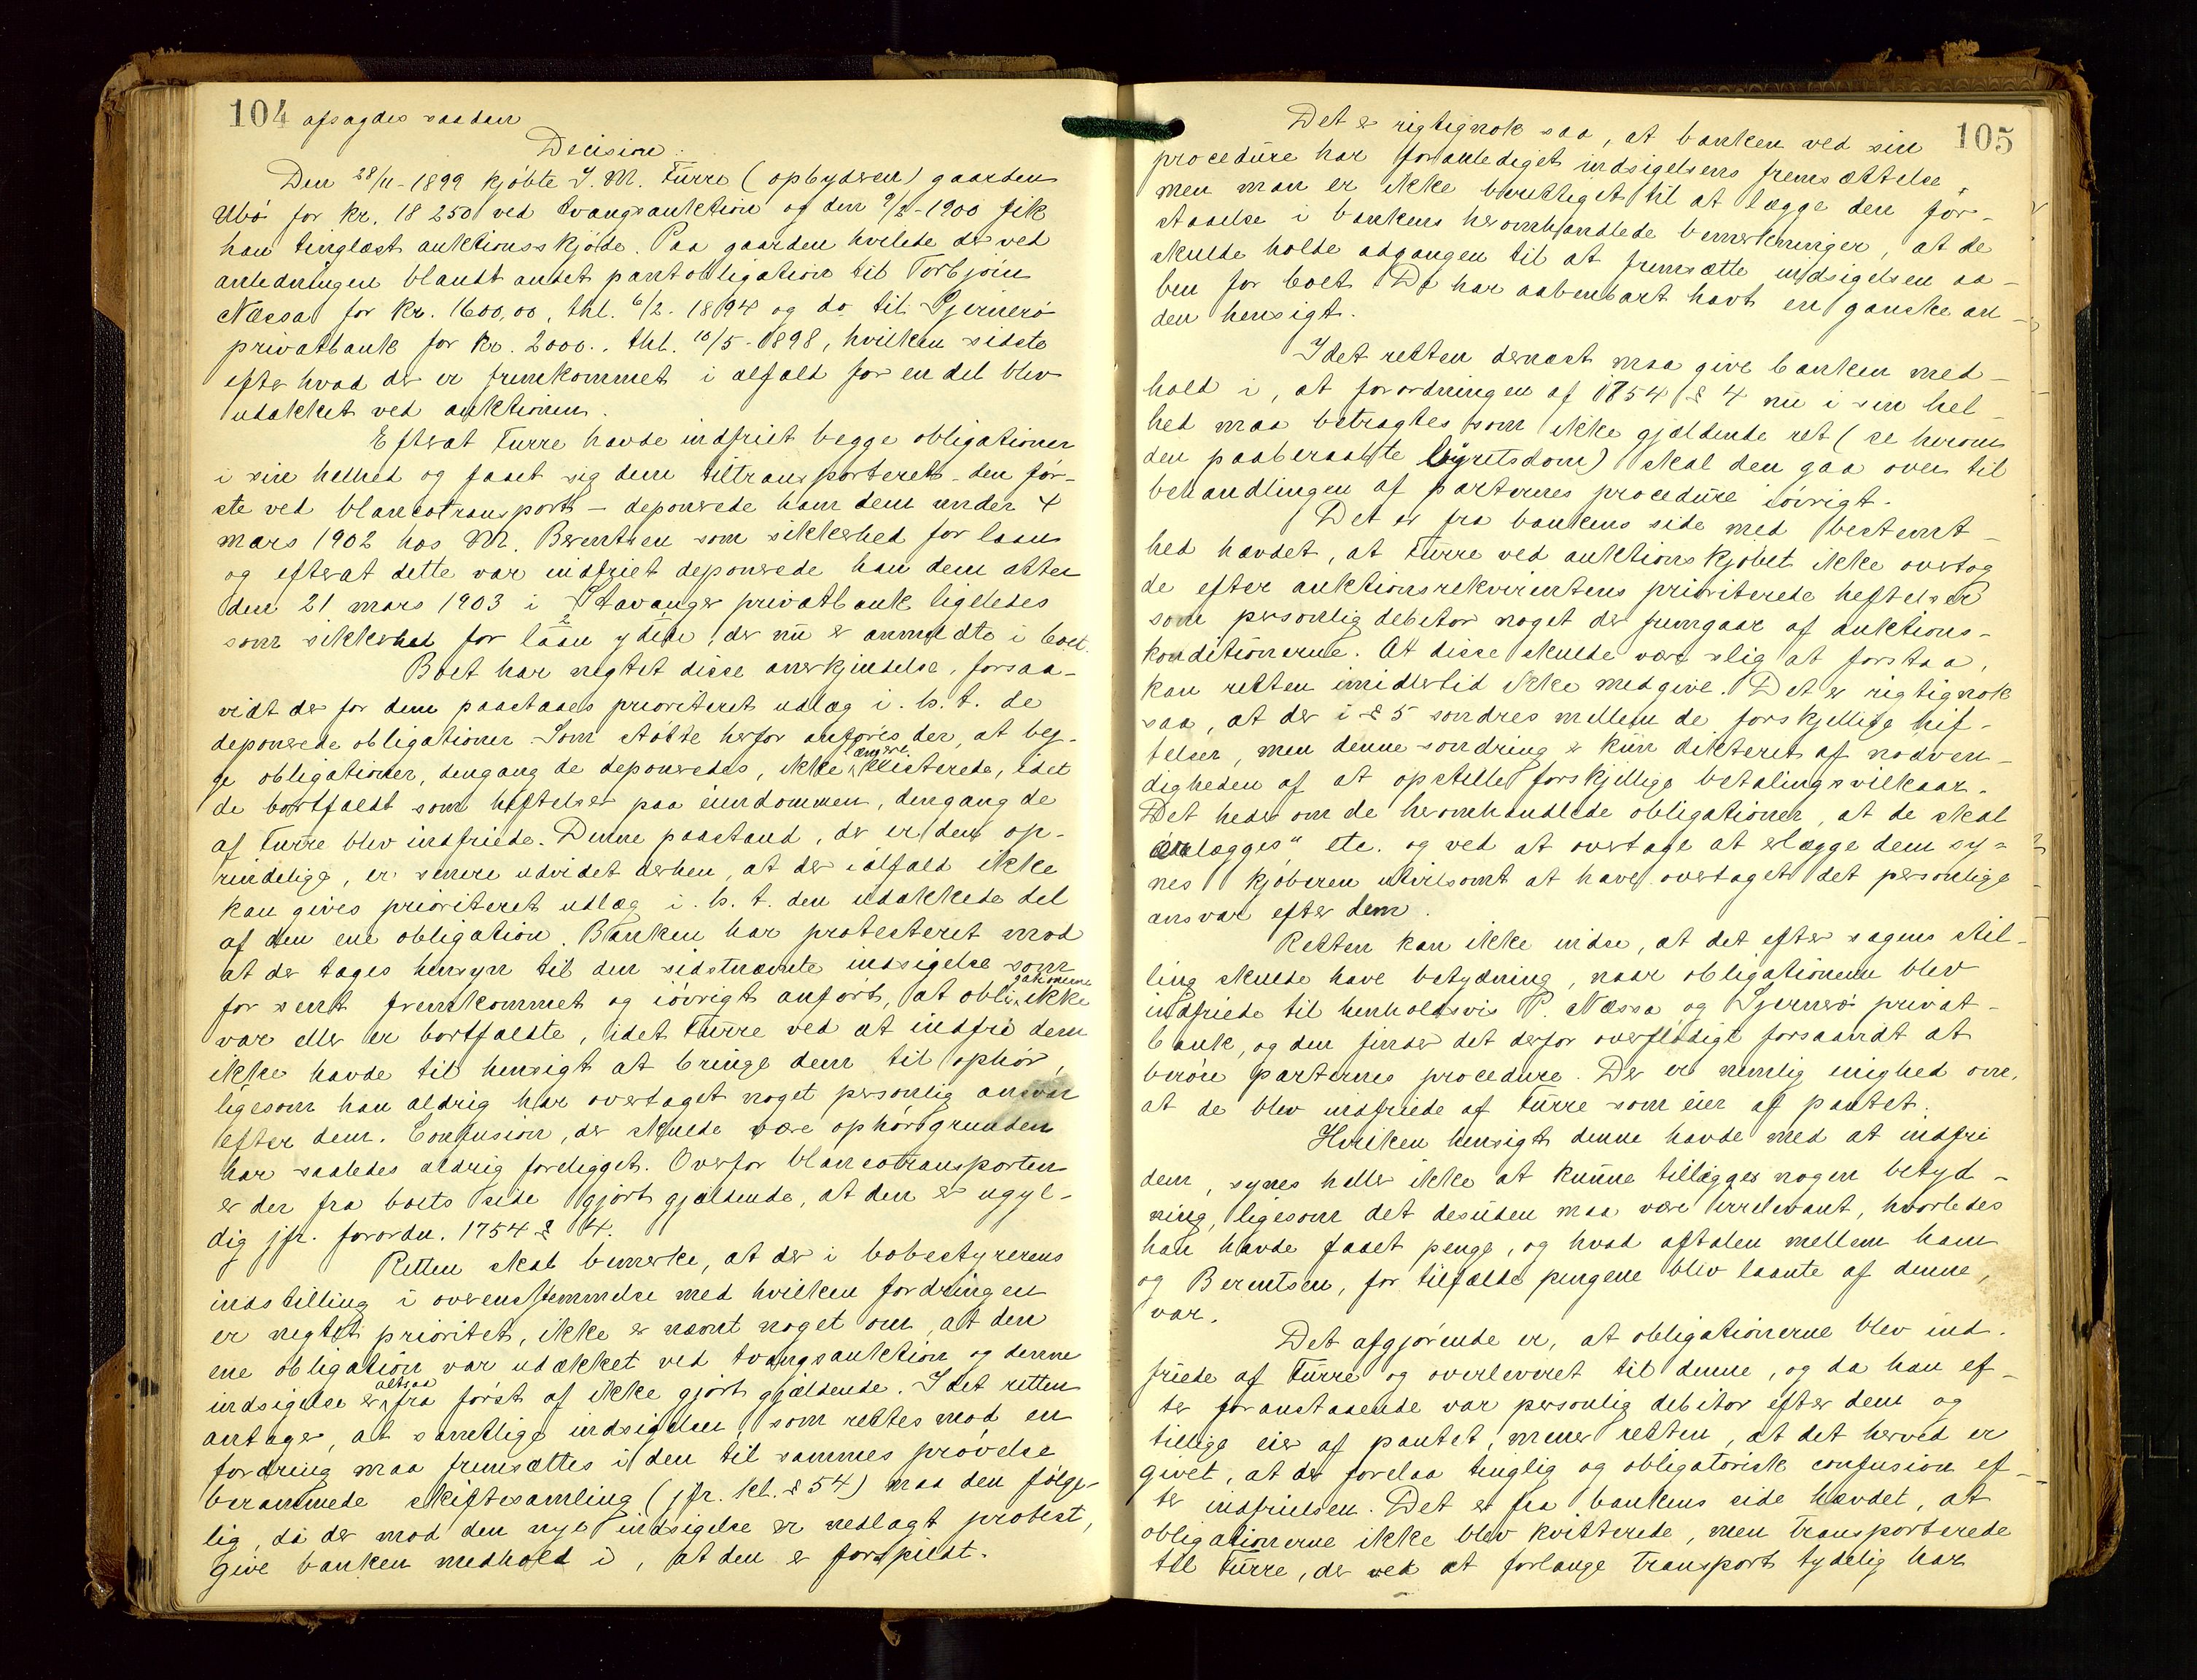 104 afsagdes saadan
Decision:
Den 28/11-1899 kjøbte I. M. Furre (opbyderen) gaarden
Ubø for kr. 18250 ved tvangsauktion og den 9/2-1900 fik
han tinglæst auktionsskjøde. Paa gaarden hvilede der ved
anledningen blandt andet pantobligation til Torbjørn
Næssa for kr. 1600,00, thl. 6/2-1894 og do til Sjernerø
privatbank for kr. 2000., thl. 10/5-1898, hvilken sidste
efter hvad der er fremkommet i alfald for en del blev
udækket ved auktionen.
Efterat Furre havde indfriet begge obligationer
i sin helhed og faaet sig dem tiltransporteret - den før-
ste ved blancotransport - deponerede han dem under 4
mars 1902 hos M. Berentsen som sikkerhed for laan
og efterat dette var indfriet deponerede han dem atter
den 21 mars 1903 i Stavanger privatbank ligeledes
som sikkerhed for 2 laan ydede, der nu er anmeldte i boet.
Boet har negtet disse anerkjendelse, forsaa-
vidt der for dem paastaaes prioriteret udlæg i. h. t. de
deponerede obligationer. Som støtte herfor anføres der, at beg-
ge obligationer, dengang de deponeredes, ikke længere existerede, idet
de bortfaldt som heftelser paa eiendommen, dengang de
af Furre blev indfriede. Denne paastand, der er den op-
rindelige, er senere udvidet derhen, at der ialfald ikke
kan gives prioriteret udlæg i. h. t. den udækkede del
af den ene obligation. Banken har protesteret mod
at der tages hensyn til den sidstnævnte indsigelse som
for sent fremkommet og iøvrigt anført, at obligationerne ikke
var eller er bortfaldte, idet Furre ved at indfri dem
ikke havde til hensigt at bringe dem til ophør,
ligesom han aldrig har overtaget noget personlig ansvar
efter dem. Confusion, der skulde være ophørsgrunden
har saaledes aldrig foreligget. Overfor blancotransporten
er der fra boets side gjort gjældende, at den er ugyl-
dig jfr. forordn. 1754 § 4.
Retten skal bemerke, at der i bobestyrerens
indstilling i overensstemmelse med hvilken fordringen
er negtet prioritet, ikke er nævnt noget om, at den
ene obligation var udækket ved tvangsauktion og denne
indsigelse er altsaa fra først af ikke gjort gjældende. Idet retten
antager, at samtlige indsigelser, som rettes mod en
fordring maa fremsættes i den til sammes prøvelse
berammede skiftesamling (jfr. kl. § 54) maa den følge-
lig, da der mod den nye indsigelse er nedlagt protest,
give banken medhold i, at den er forspildt.
105
Det er rigtignok saa, at banken ved sin
procedure har foranlediget indsigelsens fremsættelse,
men man er ikke berettiget til at lægge den for-
staaelse i bankens heromhandlede bemerkninger, at de
skulde holde adgangen til at fremsætte indsigelsen aa-
ben for boet. De har aabenbart havt en ganske an-
den hensigt.
Idet retten dernæst maa give banken med-
hold i, at forordningen af 1754 § 4 nu i sin hel-
hed maa betragtes som ikke gjældende ret (se herom
den paaberaabte byretsdom) skal den gaa over til
behandlingen af parternes procedure iøvrigt.
Det er fra bankens side med bestemt-
hed hævdet, at Furre ved auktionskjøbet ikke overtog
de efter auktionsrekvirentens prioriterede heftelser
som personlig debitor noget der fremgaar af auktions-
konditionerne. At disse skulde være slig at forstaa,
kan retten imidlertid ikke medgive. Det er rigtignok
saa, at der i § 5 sondres mellem de forskjellige hef-
telser, men denne sondring er kun dikteret af nødven-
digheden af at opstille forskjellige betalingsvilkaar.
Det heder om de heromhandlede obligationer, at de skal
"erlægges" etc. og ved at overtage at erlægge dem sy-
nes kjøberen utvilsomt at have overtaget det personlige
ansvar efter dem.
Retten kan ikke indse, at det efter sagens stil-
ling skulde have betydning, naar obligationerne blev
indfriede til henholdsvis P. Næssa og Sjernerø privat-
bank, og den finder det derfor overflødigt forsaavidt at
berøre parternes procedure. Der er nemlig enighed om,
at de blev indfriede af Furre som eier af pantet.
Hvilken hensigt denne havde med at indfri
dem, synes heller ikke at kunne tillægges nogen betyd-
ning, ligesom det desuden maa være irrelevant, hvorledes
han havde faaet penge, og hvad aftalen mellem ham
og Berentsen, for tilfælde pengene blev laante af denne,
var.
Det afgjørende er, at obligationerne blev ind-
friede af Furre og overleveret til denne, og da han ef-
ter foranstaaende var personlig debitor efter dem og
tillige eier af pantet, mener retten, at det herved er
givet, at der forelaa tinglig og obligatorisk confusion ef-
ter indfrielsen. Det er fra bankens side hævdet, at
obligationerne ikke blev kvitterede, men transporterede
til Furre, der ved at forlange transport tydelig har